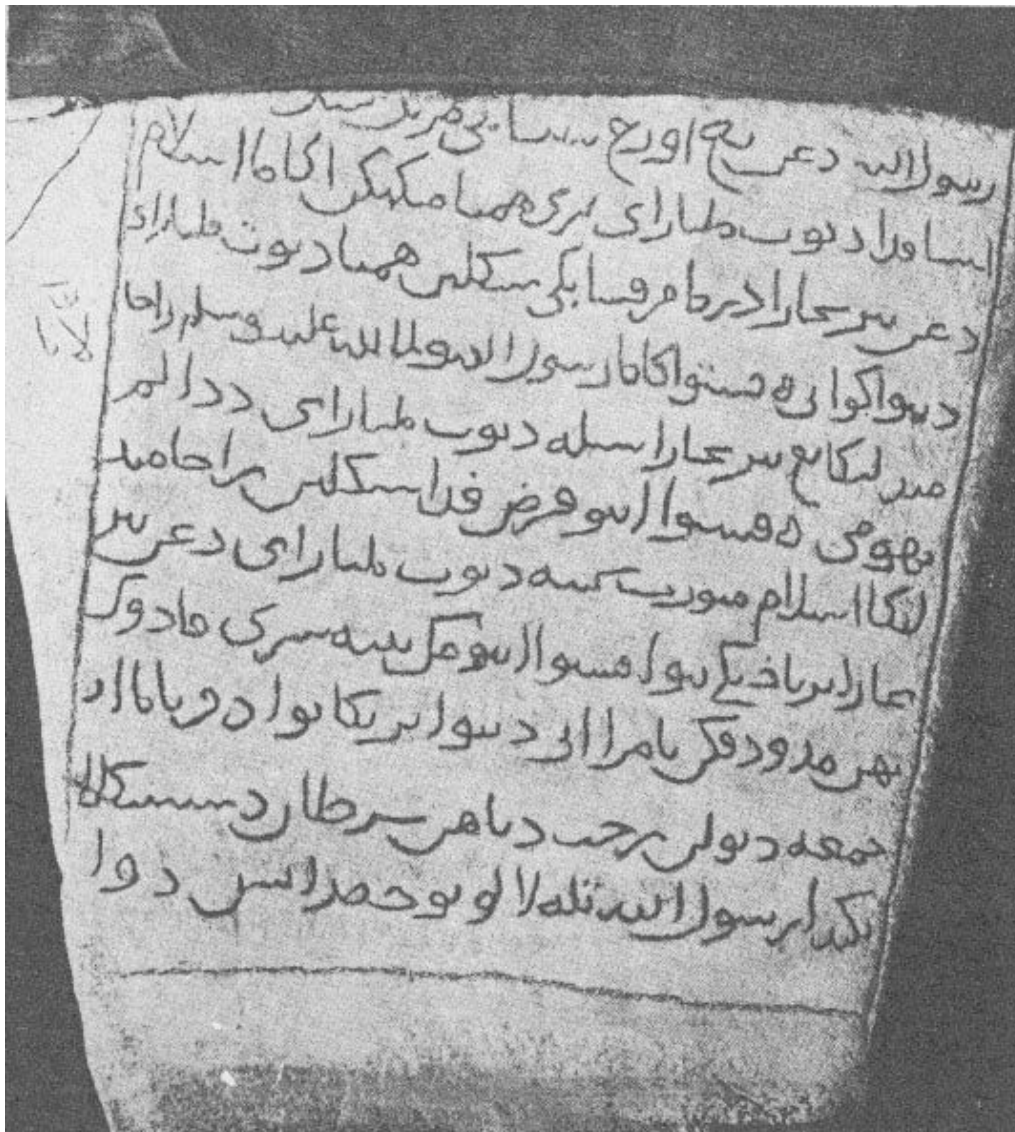 رسول الله دغن يغ اورغ سسابكي مريك
اسا فدا ديوت ملياراي بري همبا منكهكن اكام اسلام
دغن بنر بچارا درما مرقسا بكي سكلين همبا ديوت ملياراي
دبنواكو اين فنتو اكام رسول الله صلى الله عليه وسلم راجا
مندليك يغ بنر بچارا سبله ديوت ملياراي ددالم
بهومي فنتوا ايتو فرض فدا سكلين راجا مند
ليكا اسلام منورت ستيته ديوت ملياراي دغن بنر
بچارا برباجيكي بنوا فنتوا ايتو مك تيته سري فادوك
تهن مدودقكن تامرا اين دبنوا ترڠكانو اد فرتاما اد
جمعة دبولن رجب دتاهن سرطان دسسنكالا
بكندا رسول الله تله لالو توجه راتس دوا